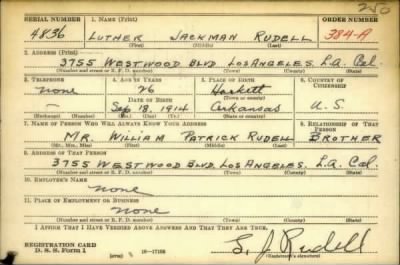 250
SERIAL NUMBER 1. NAME (Print) ORDER NUMBER
4836 LUTHER JACKMAN RUDELL 384-A
(First) (Middle) (Last)
2. ADDRESS (Print)
3755 WESTWOOD BLVD LOS ANGELES. L.A. Cal.
(Number and street or R. F. D. number) (Town) (County) (State)
3. TELEPHONE 4. AGE IN YEARS 5. PLACE OF BIRTH 6. COUNTRY OF CITIZENSHIP
None 26 Hackett
DATE OF BIRTH (Town or county)
Sep. 18, 1914 Arkansas U.S.
(Exchange) (Number) (Mo.) (Day) (Yr.) (State or country)
7. NAME OF PERSON WHO WILL ALWAYS KNOW YOUR ADDRESS 8. RELATIONSHIP OF THAT PERSON
MR. WILLIAM PATRICK RUDELL BROTHER
(Mr., Mrs., Miss) (First) (Middle) (Last)
9. ADDRESS OF THAT PERSON
3755 WESTWOOD BLVD. LOS ANGELES. L.A. Cal.
(Number and street or R. F. D. number) (Town) (County) (State)
10. EMPLOYER'S NAME
None
11. PLACE OF EMPLOYMENT OR BUSINESS
None
(Number and street or R. F. D. number) (Town) (County) (State)
I AFFIRM THAT I HAVE VERIFIED ABOVE ANSWERS AND THAT THEY ARE TRUE.
REGISTRATION CARD
D. S. S. Form 1 (over) 16—17105 (Registrant's signature)